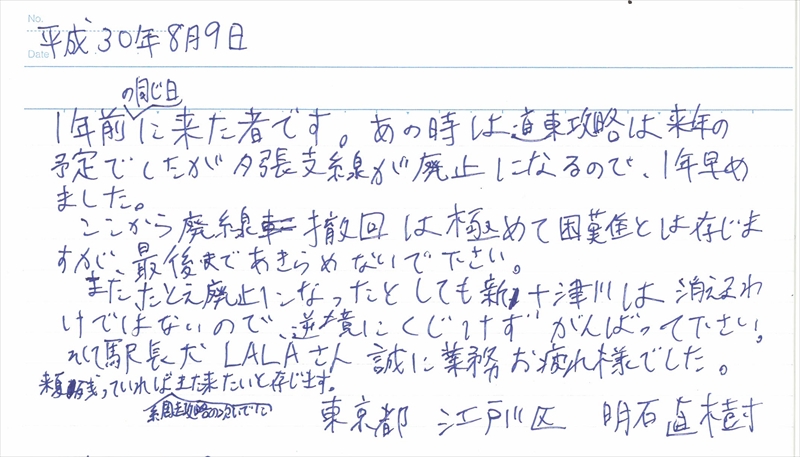 No.
Date
平成30年8月9日
の同じ日
1年前に来た者です。あの時は道東攻略は来年の
予定でしたが夕張支線が廃止になるので、1年早め
ました。
ここから廃線撤回は極めて困難とは存じま
すが、最後まであきらめないで下さい。
また、たとえ廃止になったとしても新十津川は消えるわ
けではないので、逆境にくじけずがんばって下さい。
そして駅長犬LALAさん 誠に業務お疲れ様でした。
残っていればまた来たいと存じます。
攻略の次いでに
東京都 江戸川区 明石直樹